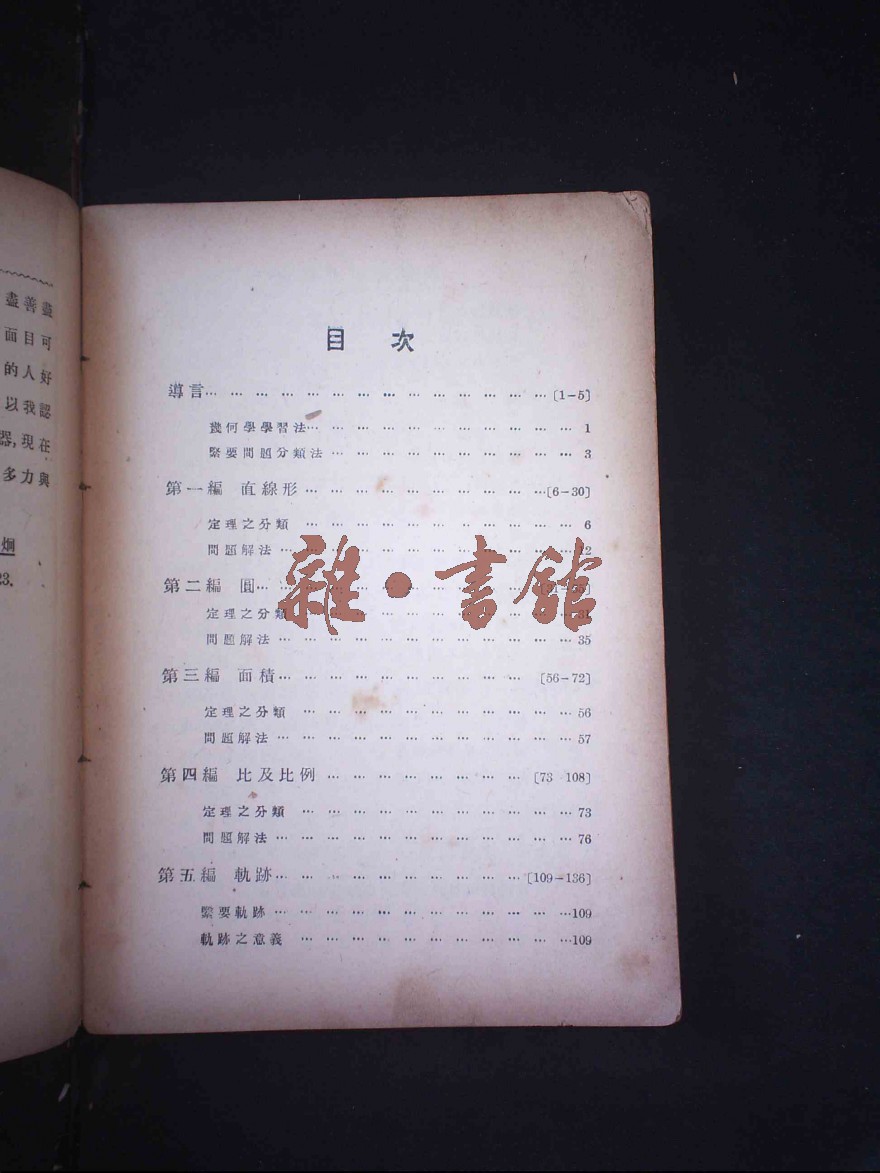 盡善盡
面目可
的人好
以我認
器,現在
多力與
烱
23.
目 次
導言… … … … … … … … … … … … … …[1–5]
幾何學學習法… … … … … … … … … … … 1
緊要問題分類法… … … … … … … … … … 3
第一編 直線形… … … … … … … … … …[6–30]
定理之分類 … … … … … … … … … … … 6
問題解法… … … … … … … … … … …
第二編 圓… … … … … … … … … … …
定理之分類 … … … … … … … … … … … 31
問題解法… … … … … … … … … … … … 35
第三編 面積… … … … … … … … … … [56–72]
定理之分類 … … … … … … … … … … … 56
問題解法… … … … … … … … … … … … 57
第四編 比及比例… … … … … … … … [73 108]
定理之分類 … … … … … … … … … … … 73
問題解法… … … … … … … … … … … … 76
第五編 軌跡… … … … … … … … … …[109–136]
緊要軌跡… … … … … … … … … … … …109
軌跡之意義 … … … … … … … … … … …109
雜·書館